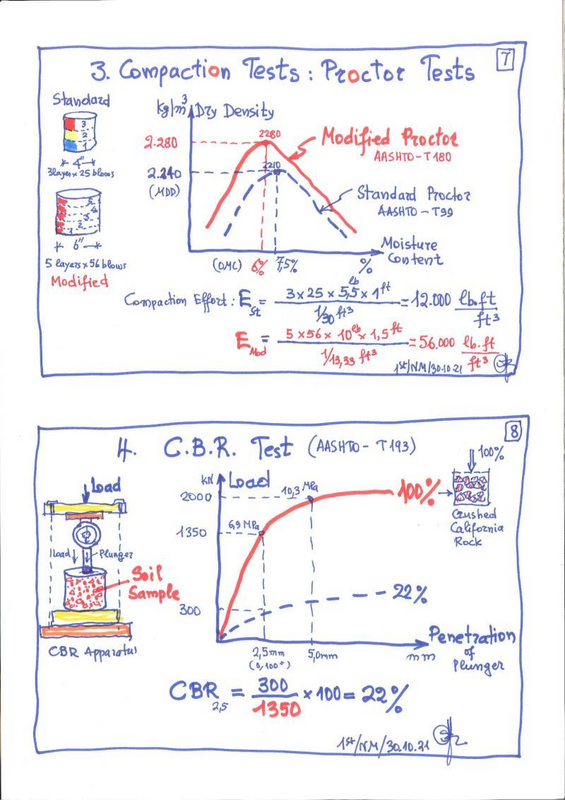 7
3. Compaction Tests : Proctor Tests
Standard
3
2
1
4"
3 layer x 25 blows
6"
5 layers x 56 blows
Modified
kg/m³ Dry Density
2.280
2280
2.240
2210
(MDD)
Modified Proctor
AASHTO - T180
Standard Proctor
AASHTO - T99
Moisture
Content
(OMC) 6% 7,5% %
Compaction Effort : E St = 3 x 25 x 5,5 lb x 1 ft / 1/30 ft³ = 12.000 lb.ft / ft³
E Mod = 5 x 56 x 10 lb x 1,5 ft / 1/13,33 ft³ = 56.000 lb.ft / ft³
1st/NM/30.10.21
8
4. C.B.R. Test (AASHTO - T193)
Load
Load
Plunger
Soil
Sample
CBR Apparatus
kN Load
2000
1350
300
6,9 MPa
10,3 MPa
100%
22%
100%
Crushed
California
Rock
2,5mm
(0,100")
5,0mm
mm
Penetration
of
Plunger
CBR 2,5 = 300 / 1350 x 100 = 22%
1st/NM/30.10.21